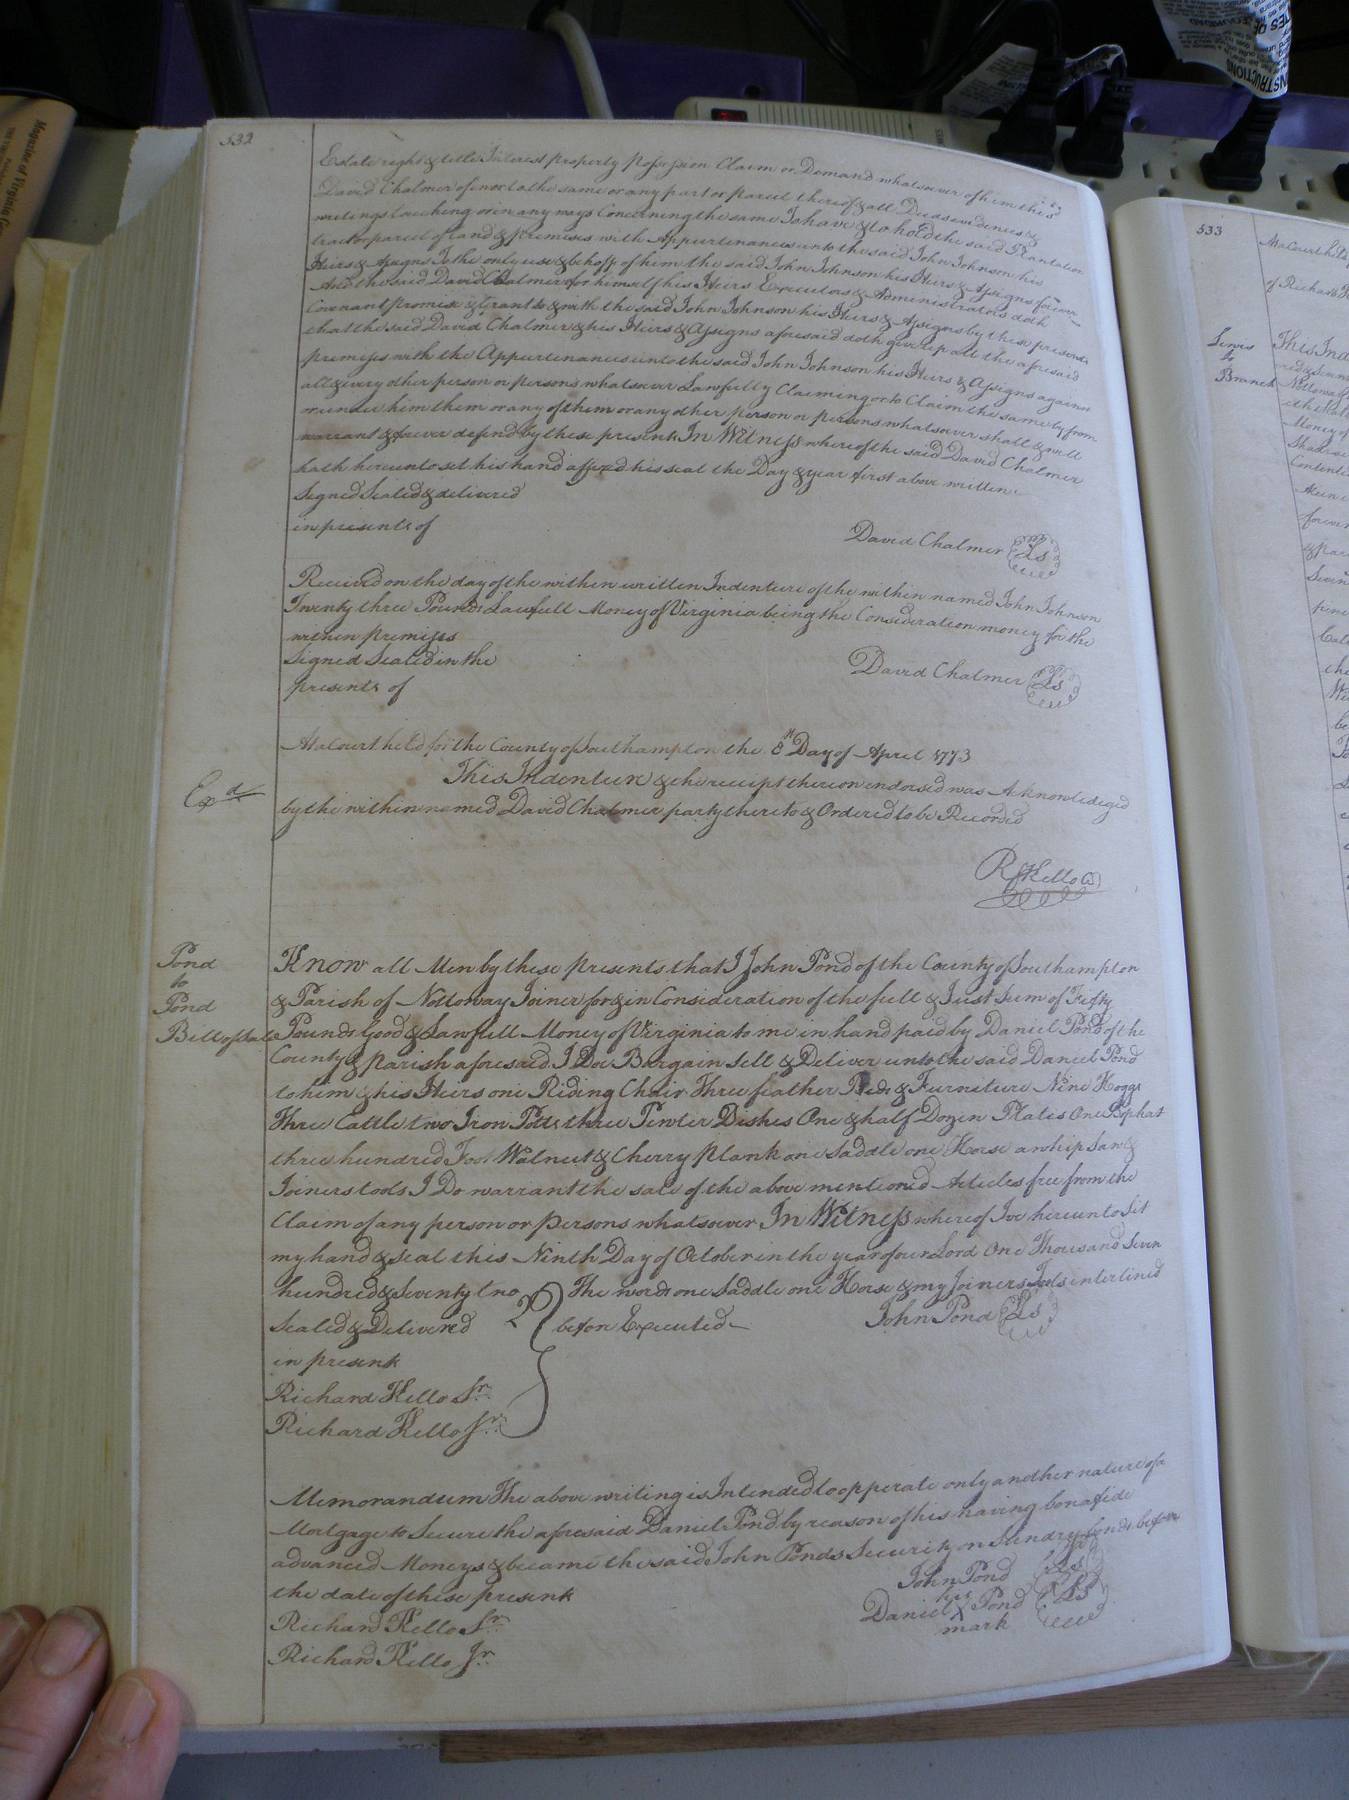 532
Estate right & title Interest property Possession Claim or Demand whatsoever of him the sd
David Chalmer of in or to the same or any part or parcel thereof & all Deeds evidences &
writings touching or in any ways Concerning the same To have & to hold the said Plantation
tract or parcel of Land & premises with Appurtenances unto the said John Johnson his
Heirs & Assigns To the only use & behoff of him the said John Johnson his Heirs & Assigns forever
And the said David Chalmer for himself his Heirs Executors & Administrators doth
Covenant promise & grant to & with the said John Johnson his Heirs & Assigns by these presents
that the said David Chalmer & his Heirs & Assigns aforesaid doth give up all the aforesaid
premises with the Appurtenances unto the said John Johnson his Heirs & Assigns against
all & every other person or persons whatsoever Lawfully Claiming or to Claim the same by from
or under him them or any of them or any other person or persons whatsoever shall & will
warrant & forever defend by these presents In Witness whereof the said David Chalmer
hath hereunto set his hand affixed his seal the Day & year first above written
Signed Sealed & delivered
in presents of
David Chalmer Ls
Received on the day of the within written Indenture of the within named John Johnson
Twenty three Pounds Lawfull Money of Virginia being the Consideration money for the
within premises
Signed Sealed in the
presents of
David Chalmer Ls
At a Court held for the County of Southampton the 8th Day of April 1773
This Indenture & the receipt thereon endorsed was Acknowledged
by the within named David Chalmer party thereto & Ordered to be Recorded
Exd
R Kello
Pond
to
Pond
Bill of Sale
Know all Men by these presents that I John Pond of the County of Southampton
& Parish of Nottoway Joiner for & in Consideration of the full & Just Sum of Fifty
Pounds Good & Lawfull Money of Virginia to me in hand paid by Daniel Pond of the
County & parish aforesaid I Doe Bargain Sell & Deliver unto the said Daniel Pond
to him & his Heirs one Riding Chair Three feather Beds & Furniture Nine Hoggs
Three Cattle two Iron Potts three Pewter Dishes One & half Dozen Plates One Bophat
three hundred Foot Walnut & Cherry plank one Saddle one Horse a whip Saw &
Joiners tools I Do warrant the sale of the above mentioned Articles free from the
Claim of any person or persons whatsoever In Witness whereof I've hereunto Sit
my hand & seal this Ninth Day of October in the year of our Lord One Thousand Seven
hundred & Seventy two The words one Saddle one Horse & my Joiners Tools interlined
Sealed & Delivered before Executed
John Pond Ls
in presents
Richard Kello Sr
Richard Kello Jr
Memorandum The above writing is Intended to opperate only another nature of a
Mortgage to Secure the aforesaid Daniel Pond by reason of his having bonafide
advanced Moneys & became the said John Ponds Security on Sundry bonds before
the date of these presents
John Pond Ls
his
Daniel X Pond Ls
mark
Richard Kello Sr
Richard Kello Jr
533
At a Court held
of Richard
Lewis
to
Branch
This Ind
Nottoway
Money of
forever
Magazine of Virginia
INSTRUCTIONS